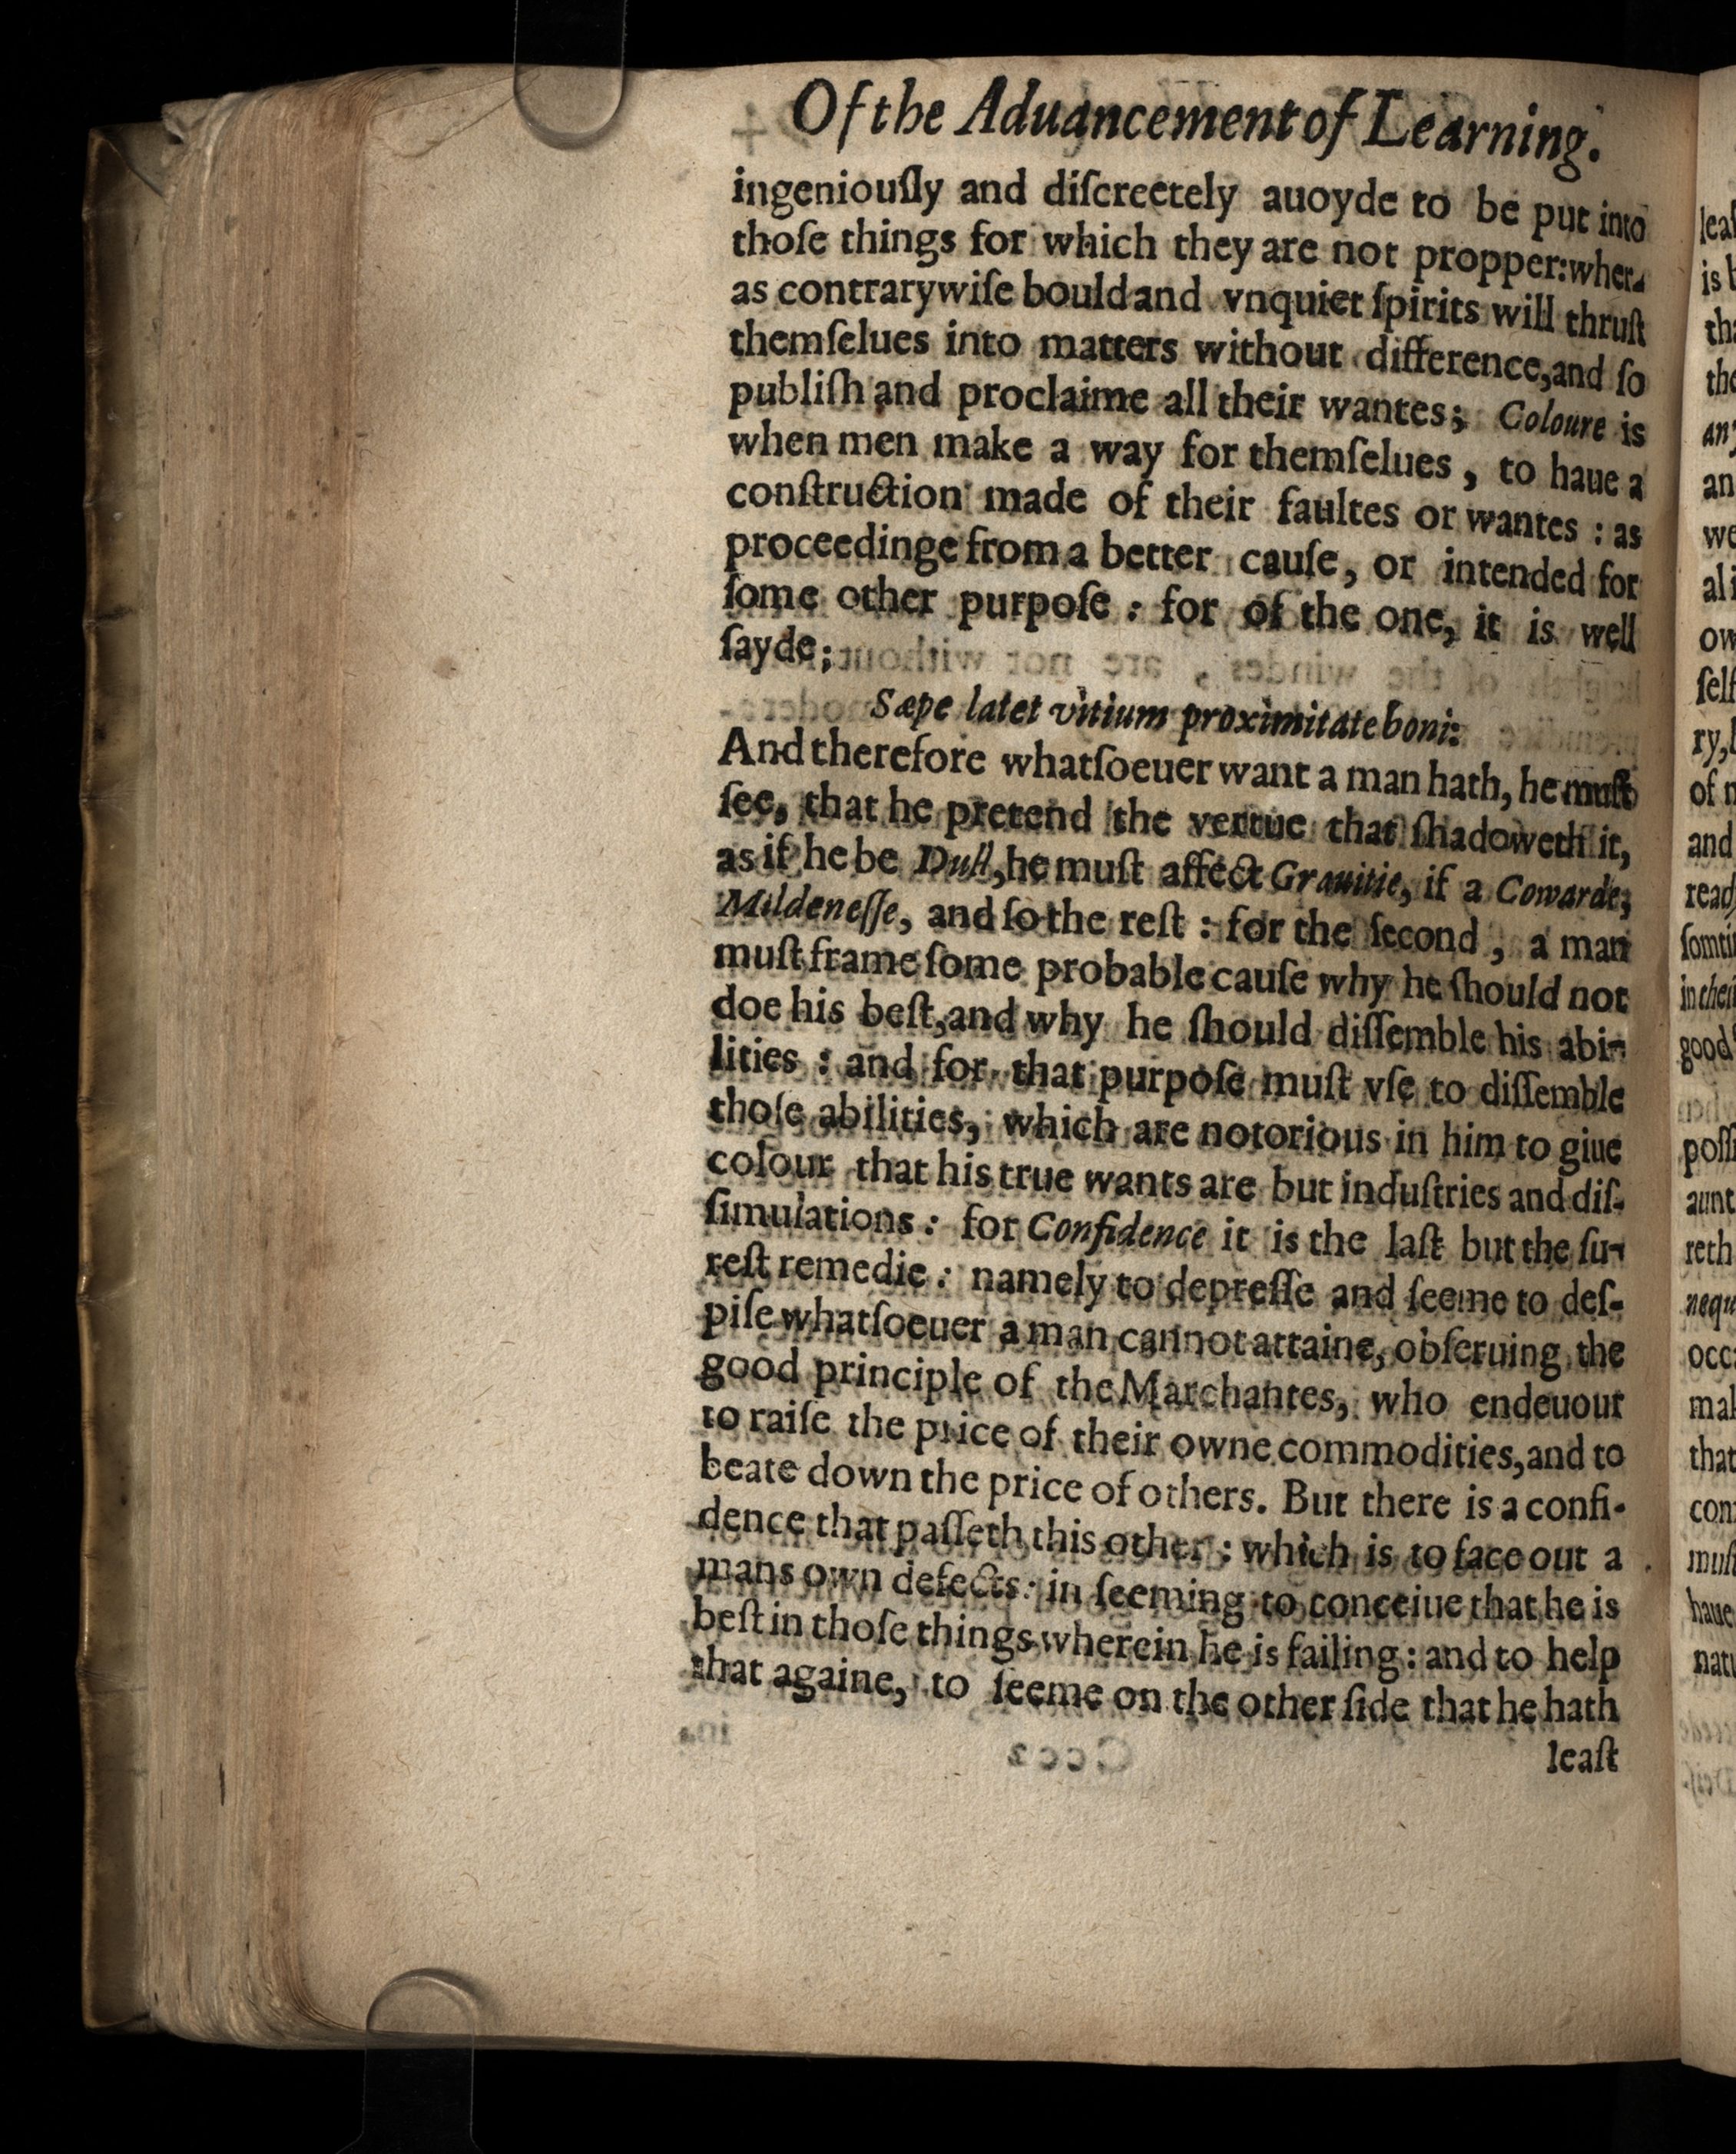 Of the Aduancement of Learning.
ingeniouſly and diſcreetely auoyde to be put into
thoſe things for which they are not propper:wher-
as contrarywiſe bould and vnquiet ſpirits will thruſt
themſelues into matters without difference,and ſo
publiſh and proclaime all their wantes; Coloure is
when men make a way for themſelues, to haue a
conſtruction made of their faultes or wantes : as
proceedinge from a better cauſe, or intended for
ſome other purpoſe : for of the one, it is well
ſayde;
Sæpe latet vitium proximitate boni:
And therefore whatſoeuer want a man hath, he muſt
ſee, that he pretend the vertue that ſhadoweth it,
as if he be Dull,he muſt affect Grauitie, if a Cowarde;
Mildeneſſe, and ſo the reſt : for the ſecond, a man
muſt frame ſome probable cauſe why he ſhould not
doe his beſt,and why he ſhould diſſemble his abi-
lities : and for that purpoſe muſt vſe to diſſemble
thoſe abilities, which are notorious in him to giue
colour that his true wants are but induſtries and diſ-
ſimulations : for Confidence it is the laſt but the ſu-
reſt remedie : namely to depreſſe and ſeeme to deſ-
piſe whatſoeuer a man cannot attaine, obſeruing the
good principle of the Marchantes, who endeuour
to raiſe the price of their owne commodities,and to
beate down the price of others. But there is a confi-
dence that paſſeth this other : which is to face out a
mans own defects : in ſeeming to conceiue that he is
beſt in thoſe things wherein he is failing : and to help
that againe, to ſeeme on the other ſide that he hath
leaſt